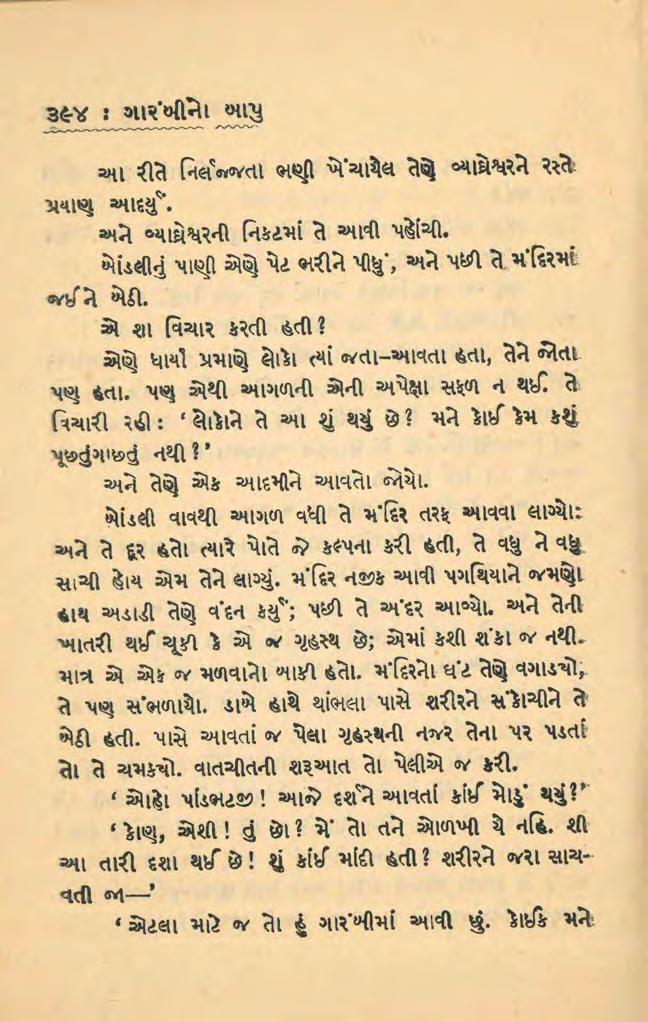 ૩૯૪ : ગારંબીનો બાપુ
આ રીતે નિર્લજ્જતા ભણી ખેંચાયેલ તેણે વ્યાઘ્રેશ્વરને રસ્તે
પ્રયાણ આદર્યું.
અને વ્યાઘ્રેશ્વરની નિકટમાં તે આવી પહોંચી.
બોંડલીનું પાણી એણે પેટ ભરીને પીધું, અને પછી તે મંદિરમાં
જઈને બેઠી.
એ શા વિચાર કરતી હતી?
એણે ધાર્યા પ્રમાણે લોકો ત્યાં જતા–આવતા હતા, તેને જોતા
પણ હતા. પણ એથી આગળની એની અપેક્ષા સફળ ન થઈ. તે
વિચારી રહી : ‘લોકોને તે આ શું થયું છે? મને કોઈ કેમ કશું
પૂછતુંગાછતું નથી?’
અને તેણે એક આદમીને આવતો જોયો.
બોંડલી વાવથી આગળ વધી તે મંદિર તરફ આવવા લાગ્યો:
અને તે દૂર હતો ત્યારે પોતે જે કલ્પના કરી હતી, તે વધુ ને વધુ
સાચી હોય એમ તેને લાગ્યું. મંદિર નજીક આવી પગથિયાને જમણો
હાથ અડાડી તેણે વંદન કર્યું; પછી તે અંદર આવ્યો. અને તેની
ખાતરી થઈ ચૂકી કે એ જ ગૃહસ્થ છે; એમાં કશી શંકા જ નથી.
માત્ર એ એક જ મળવાનો બાકી હતો. મંદિરનો ઘંટ તેણે વગાડ્યો;
તે પણ સંભળાયો. ડાબે હાથે થાંભલા પાસે શરીરને સંકોચીને તે
બેઠી હતી. પાસે આવતાં જ પેલા ગૃહસ્થની નજર તેના પર પડતાં
તો તે ચમક્યો. વાતચીતની શરૂઆત તો પેલીએ જ કરી.
‘ઓહો પાંડભટજી! આજે દર્શને આવતાં કાંઈ મોડું થયું?’
‘કોણ, એશી! તું છો? મેં તો તને ઓળખી યે નહિ. શી
આ તારી દશા થઈ છે! શું કાંઈ માંદી હતી? શરીરને જરા સાચ-
વતી જા—’
‘એટલા માટે જ તો હું ગારંબીમાં આવી છું. કોઈક મને